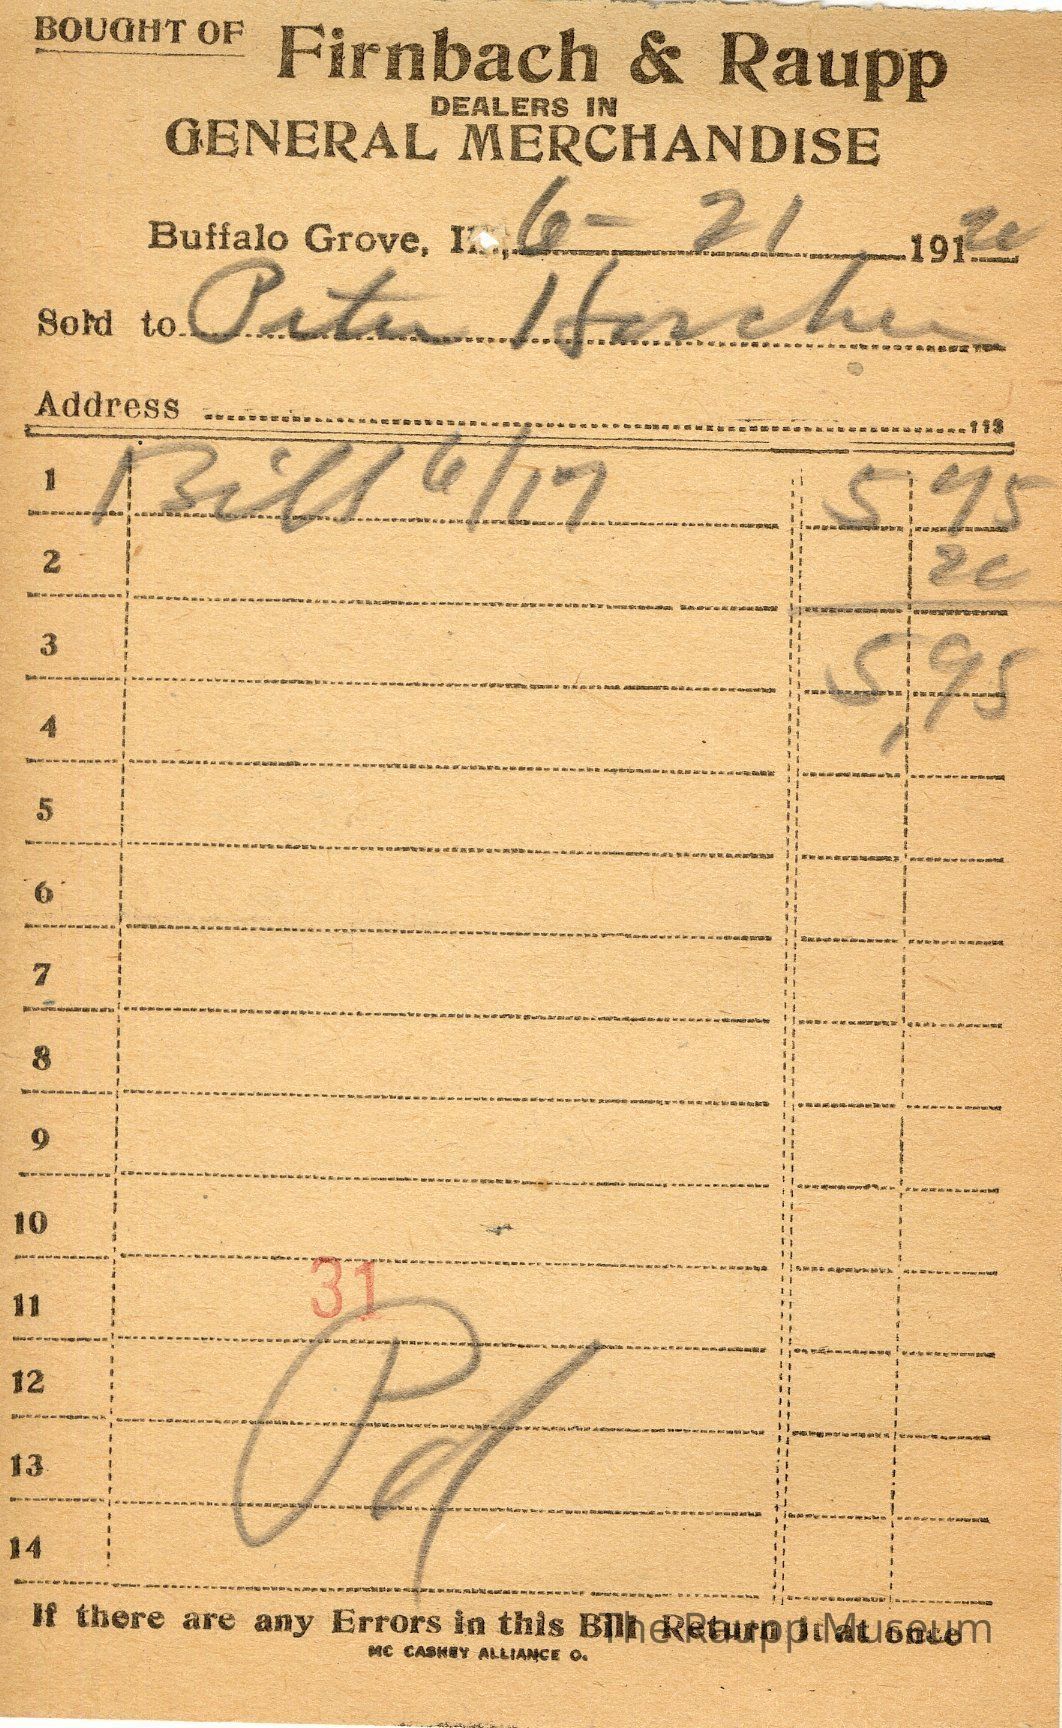 BOUGHT OF Firnbach & Raupp
DEALERS IN
GENERAL MERCHANDISE
Buffalo Grove, Ill., 6-21 191 20
Sold to Peter Horcher
Address
113
1 Bill 6/17 5 75
2 20
3 5,95
4
5
6
7
8
9
10
31
11
12 Pd
13
14
If there are any Errors in this Bill Return it at once
The Raupp Museum
MC CASKEY ALLIANCE O.